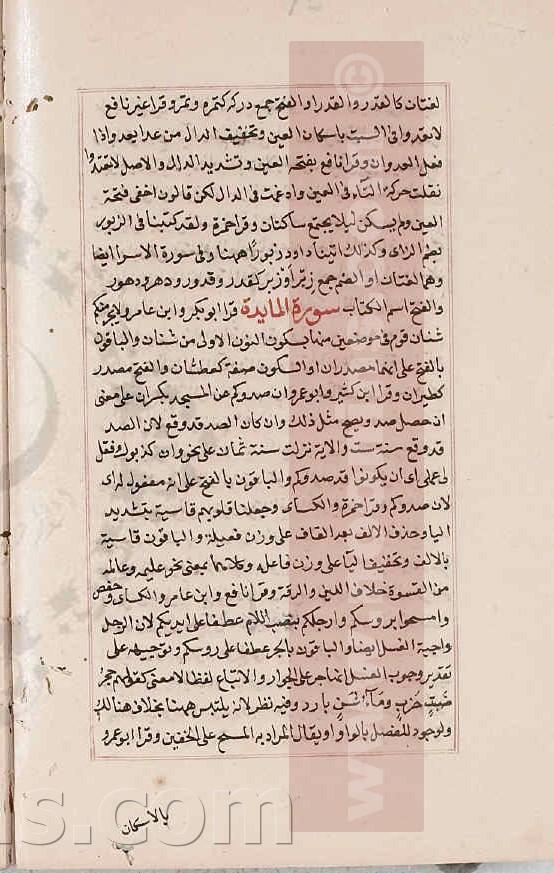 لغتان كالقدر والقدر او الفتح جمع دركة كثمرة وثمر وقرا غير نافع
لا تعدوا فى السبت باسكان العين وتخفيف الدال من عدا يعدو اذا
فعل العدوان وقرا نافع بفتح العين وتشديد الدال والاصل لا تعتدوا
نقلت حركة التاء فى العين وادغمت فى الدال لكن قالون اخفى فتحة
العين ولم يسكن ليلا يجتمع ساكنان وقرا حمزة ولقد كتبنا فى الزبور
بضم الزاى وكذلك اتينا داود زبورا ههنا وفى سورة الاسرا ايضا
وهما لغتان او الضم جمع زبر او زبر كقدر وقدور ودهر ودهور
والفتح اسم الكتاب سورة المايدة قرا ابو بكر وابن عامر ولا يجرمنكم
شنان قوم فى موضعين منها بسكون النون الاولى من شنان والباقون
بالفتح على انهما مصدران او السكون صفة كعطشان والفتح مصدر
كطيران وقرا ابن كثير وابو عمرو ان صدوكم عن المسجد بكسر ان على معنى
ان حصل صد ويصح مثل ذلك وان كان الصد قد وقع لان الصد
قد وقع سنة ست والاية نزلت سنة ثمان على نحو وان كذبوك فقل
لى عملى اى ان يكونوا قد صدوكم والباقون بالفتح على انه مفعول له اى
لان صدوكم وقرا حمزة والكساى وجعلنا قلوبهم قاسية بتشديد
اليا وحذف الالف بعد القاف على وزن فعيلة والباقون قاسية
بالالف وتخفيف اليا على وزن فاعلة وكلاهما بمعنى نحو عليمة وعالمة
من القسوة خلاف اللين والرقة وقرا نافع وابن عامر والكساى وحفص
وامسحوا بروسكم وارجلكم بنصب اللام عطفا على ايديكم لان الرجل
واجبة الغسل ايضا والباقون بالجر عطفا على روسكم وتوجيهه على
تقدير وجوب الغسل انما جر على الجوار والاتباع لفظا لا معنى كقولهم جحر
ضب خرب وماء شن بارد وفيه نظر لانه يلتبس ههنا بخلاف هنالك
ولوجود الفصل بالواو او يقال المراد به المسح على الخفين وقرا ابو عمرو
بالاسكان
www.
s.com